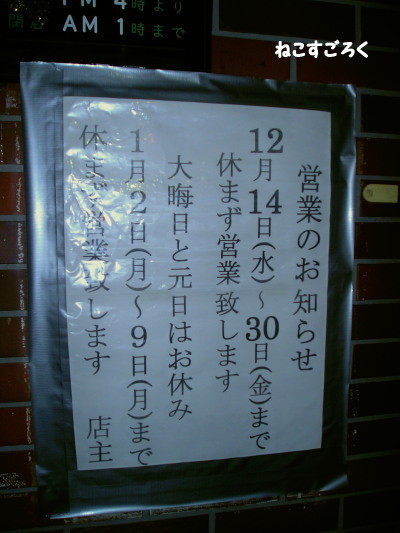 PM 4時より
閉店 AM 1時まで
ねこすごろく
営業のお知らせ
12月14日(水)〜30日(金)まで
休まず営業致します
大晦日と元日はお休み
1月2日(月)〜9日(月)まで
休まず営業致します 店主